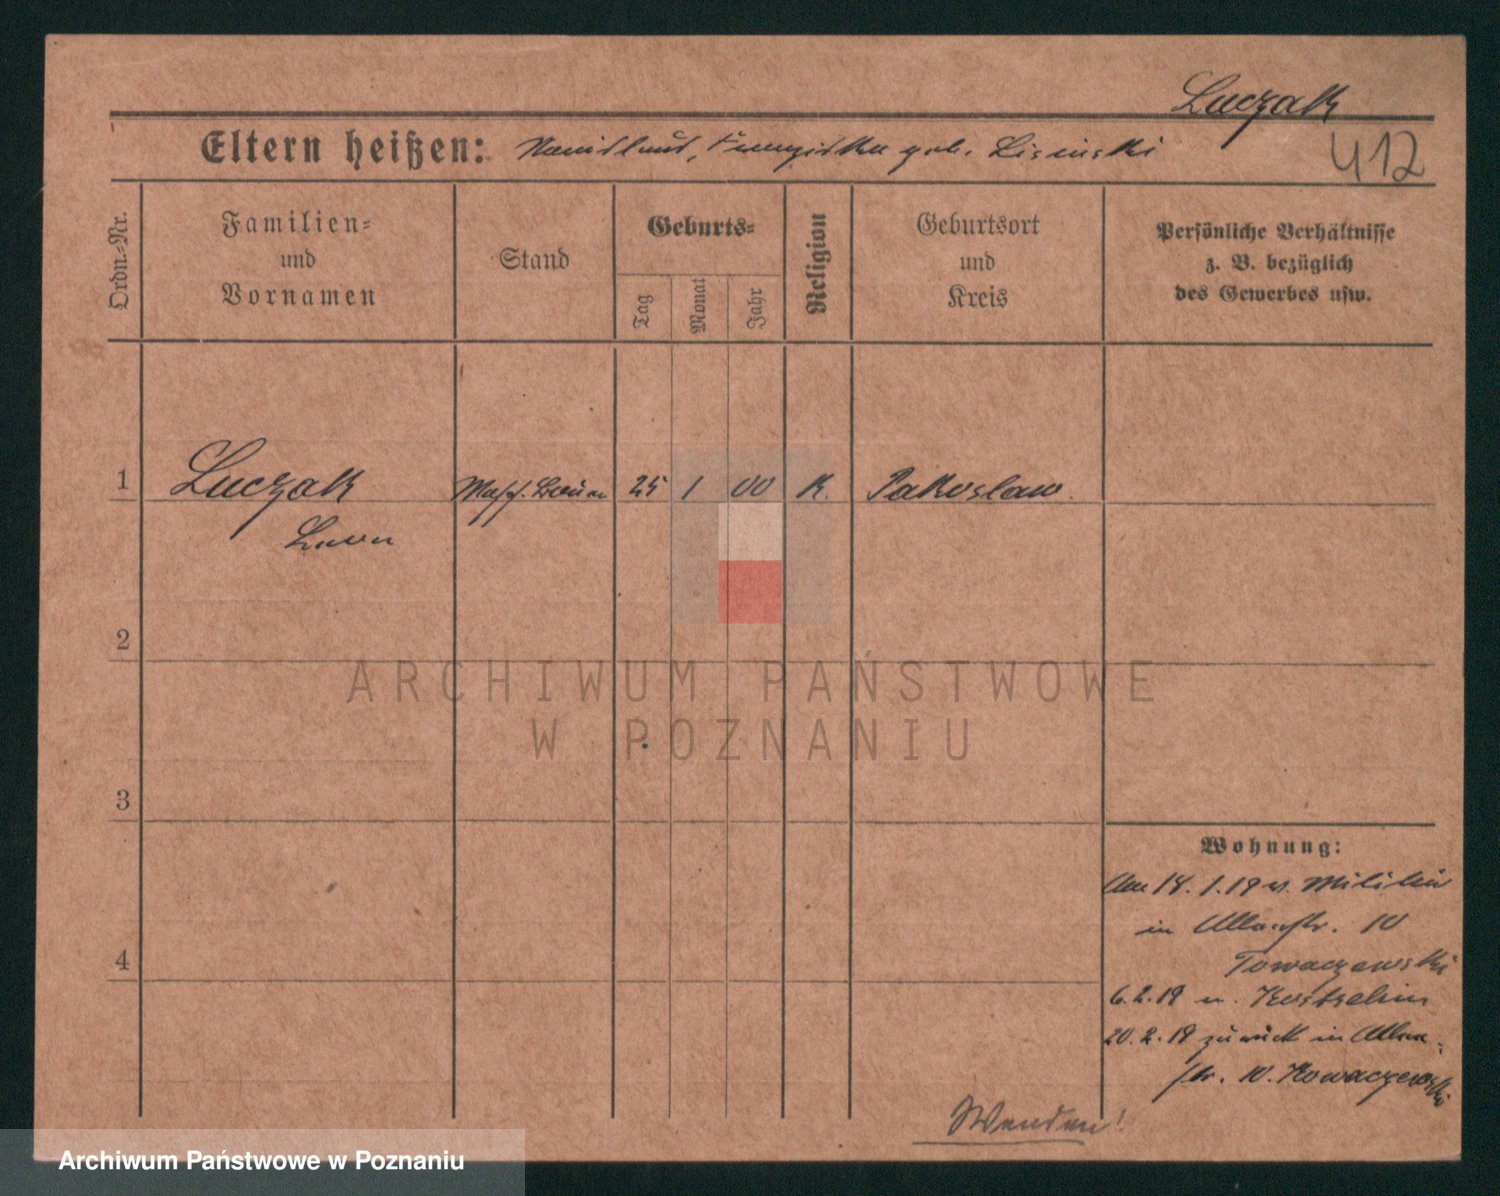 Luczak
412
Eltern heißen: geb. Lisinski
Ordn.-Nr.
Familien- und Vornamen
Stand
Geburts-
Tag
Monat
Jahr
Religion
Geburtsort und Kreis
Persönliche Verhältnisse
z. B. bezüglich
des Gewerbes usw.
1 Luczak Masch. Bauer 25 1 00 K. Pakoslaw.
Leon
2
ARCHIWUM PAŃSTWOWE
W POZNANIU
3
4
Wohnung:
Am 14.1.19 v. Militär
in str. 10
6.2.19 n.
20.2.19 zurück in
str. 10. Kowaczewski
Wenden!
Archiwum Państwowe w Poznaniu